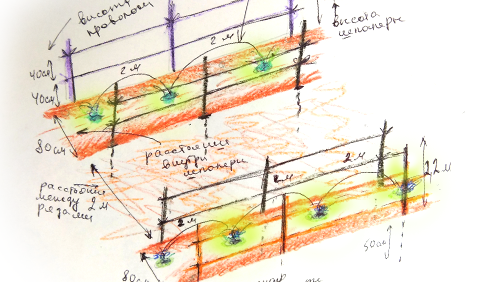 высота
проволоки
высота
шпалеры
2 м
2 м
40см
40см
80см
расстояние
внутри
шпалеры
расстояние
между 2 м
рядами
2 м
2 м
2 м
2,2 м
50см
80см